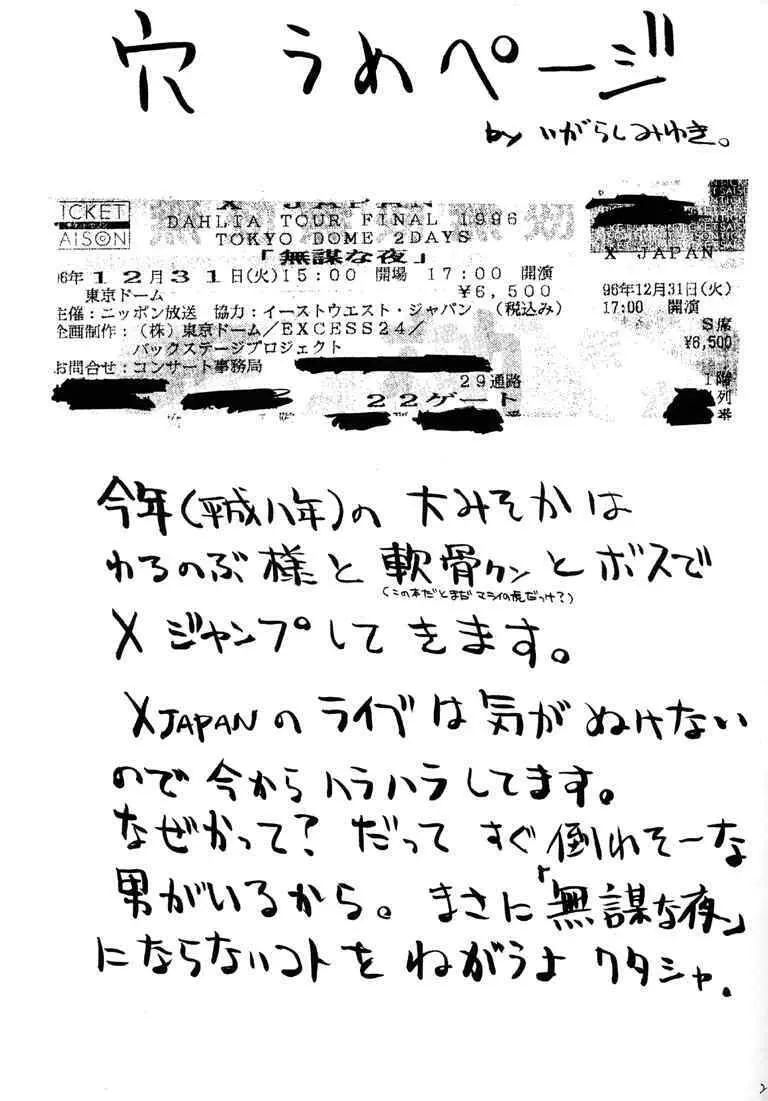 穴 うめページ
by いがらしみゆき。
TICKET
SAISON
X JAPAN
DAHLIA TOUR FINAL 1996
TOKYO DOME 2DAYS
「無謀な夜」
96年12月31日(火)15:00 開場 17:00 開演
東京ドーム ¥6,500
主催:ニッポン放送 協力:イーストウエスト・ジャパン (税込み)
企画制作:(株)東京ドーム/EXCESS24/
バックステージプロジェクト
お問合せ:コンサート事務局
29通路
22ゲート
番
X JAPAN
96年12月31日(火)
17:00 開演
S席
¥6,500
1階
列
番
今年(平成八年)の 大みそかは
わるのぶ様と 軟骨クンとボスで
(この本だとまだ マライの虎だっけ?)
X ジャンプしてきます。
X JAPANの ライブは気がぬけない
ので 今からハラハラしてます。
なぜかって? だって すぐ倒れそーな
男がいるから。まさに「無謀な夜」
にならないコトを ねがうよ ワタシャ.
2